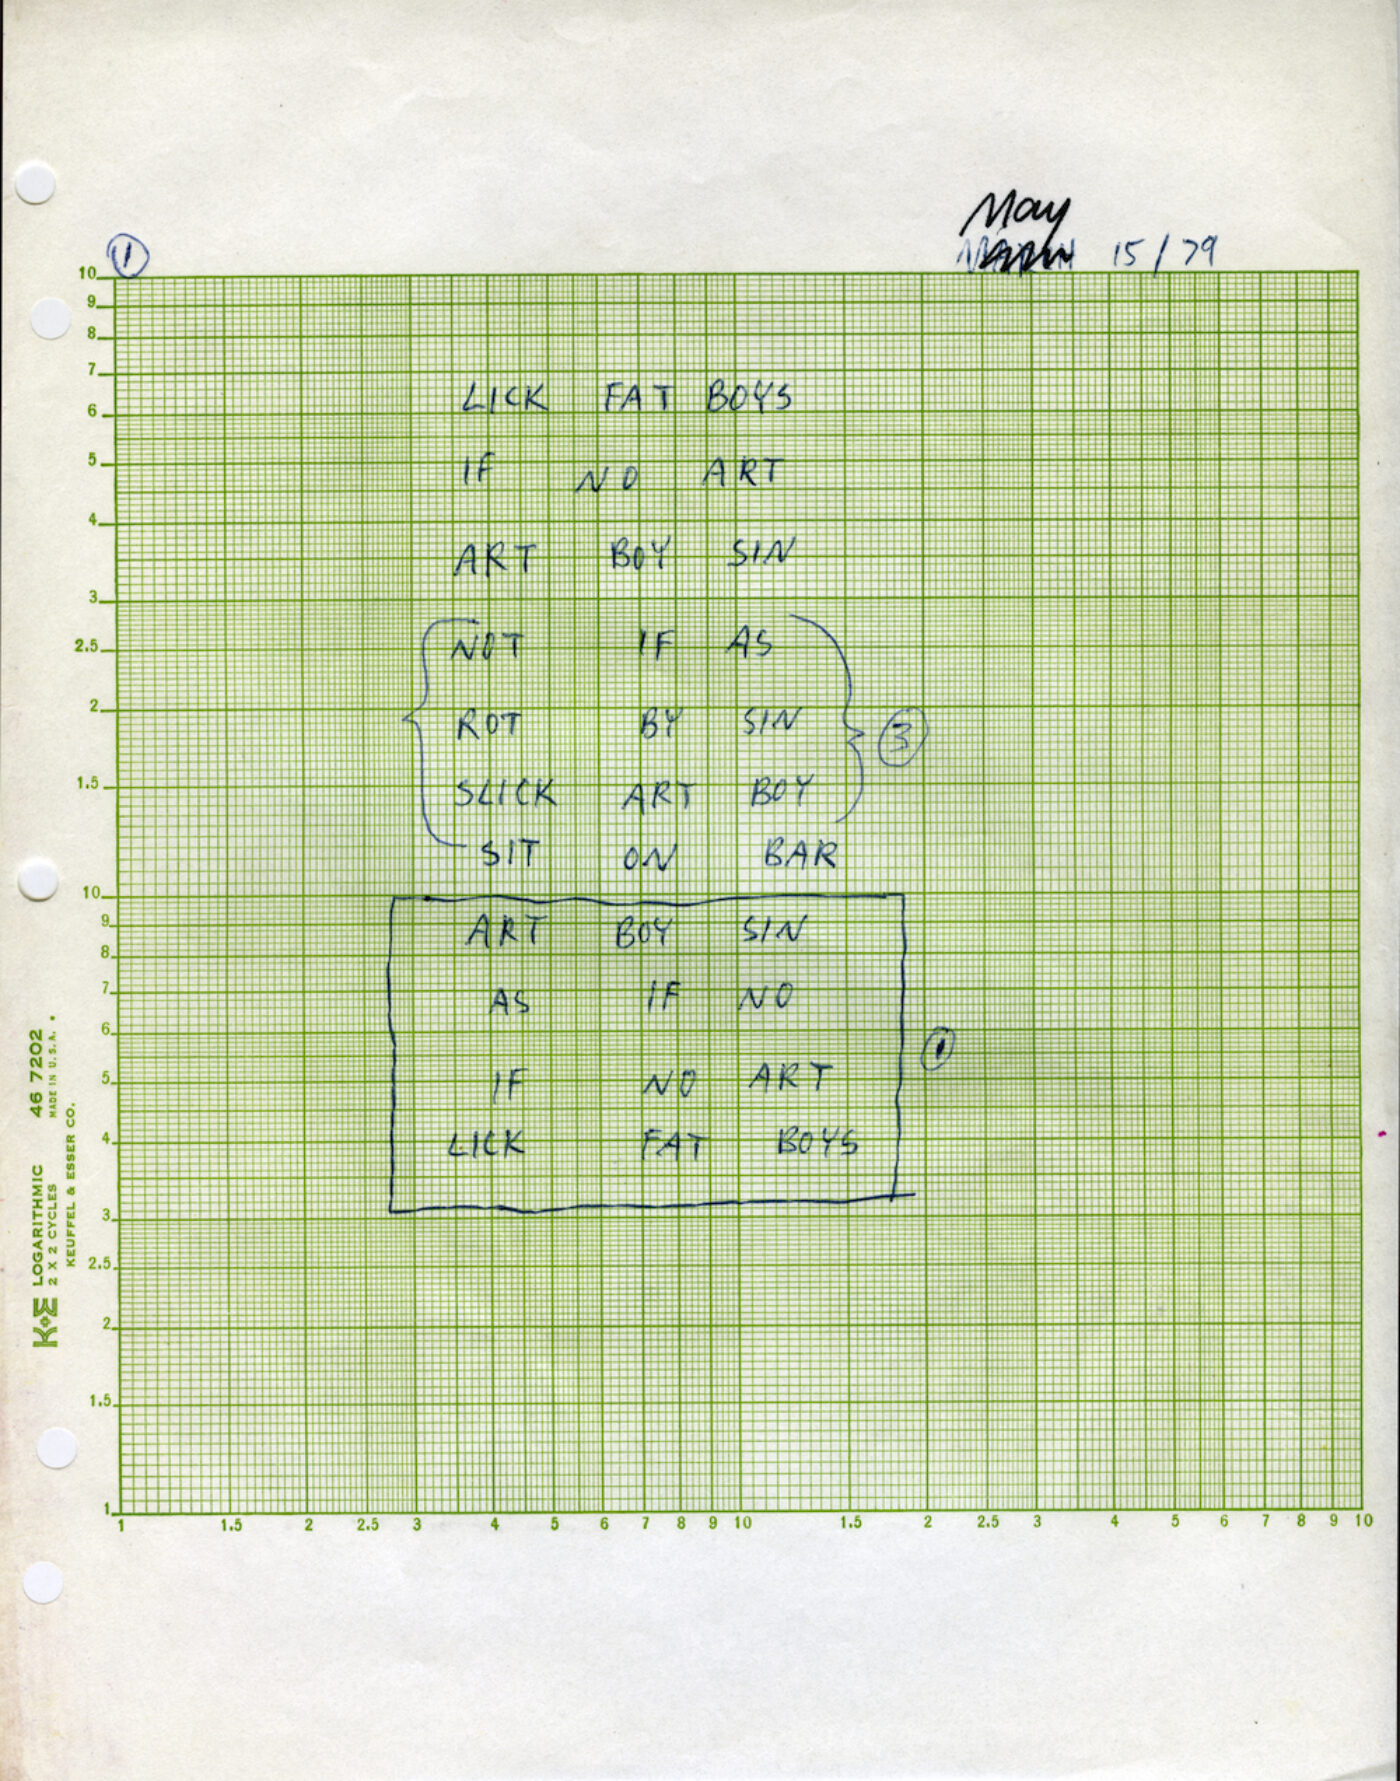 May
MARCH 15/79
1
LICK FAT BOYS
IF NO ART
ART BOY SIN
NOT IF AS
ROT BY SIN
3
SLICK ART BOY
SIT ON BAR
ART BOY SIN
AS IF NO
1
IF NO ART
LICK FAT BOYS
10
9
8
7
6
5
4
3
2.5
2
1.5
10
9
8
7
6
5
4
3
2.5
2
1.5
1
1 1.5 2 2.5 3 4 5 6 7 8 9 10 1.5 2 2.5 3 4 5 6 7 8 9 10
K+E LOGARITHMIC 46 7202
2 X 2 CYCLES MADE IN U.S.A.
KEUFFEL & ESSER CO.